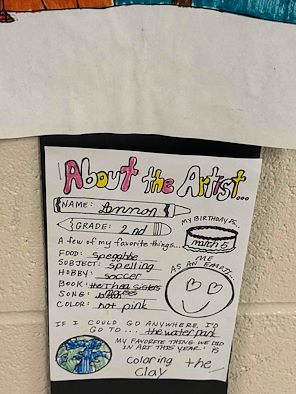 About the Artist...
NAME: Lennon
MY BIRTHDAY IS..
GRADE: 2nd
march 5
A few of my favorite things...
ME
AS AN EMOJI
FOOD: speggtie
SUBJECT: spelling
HOBBY: soccer
BOOK: sisters
SONG:
COLOR: hot pink
IF I COULD GO ANYWHERE, I'D
GO TO... the water park
MY FAVORITE THING WE DID
IN ART THIS YEAR IS
Coloring the
Clay